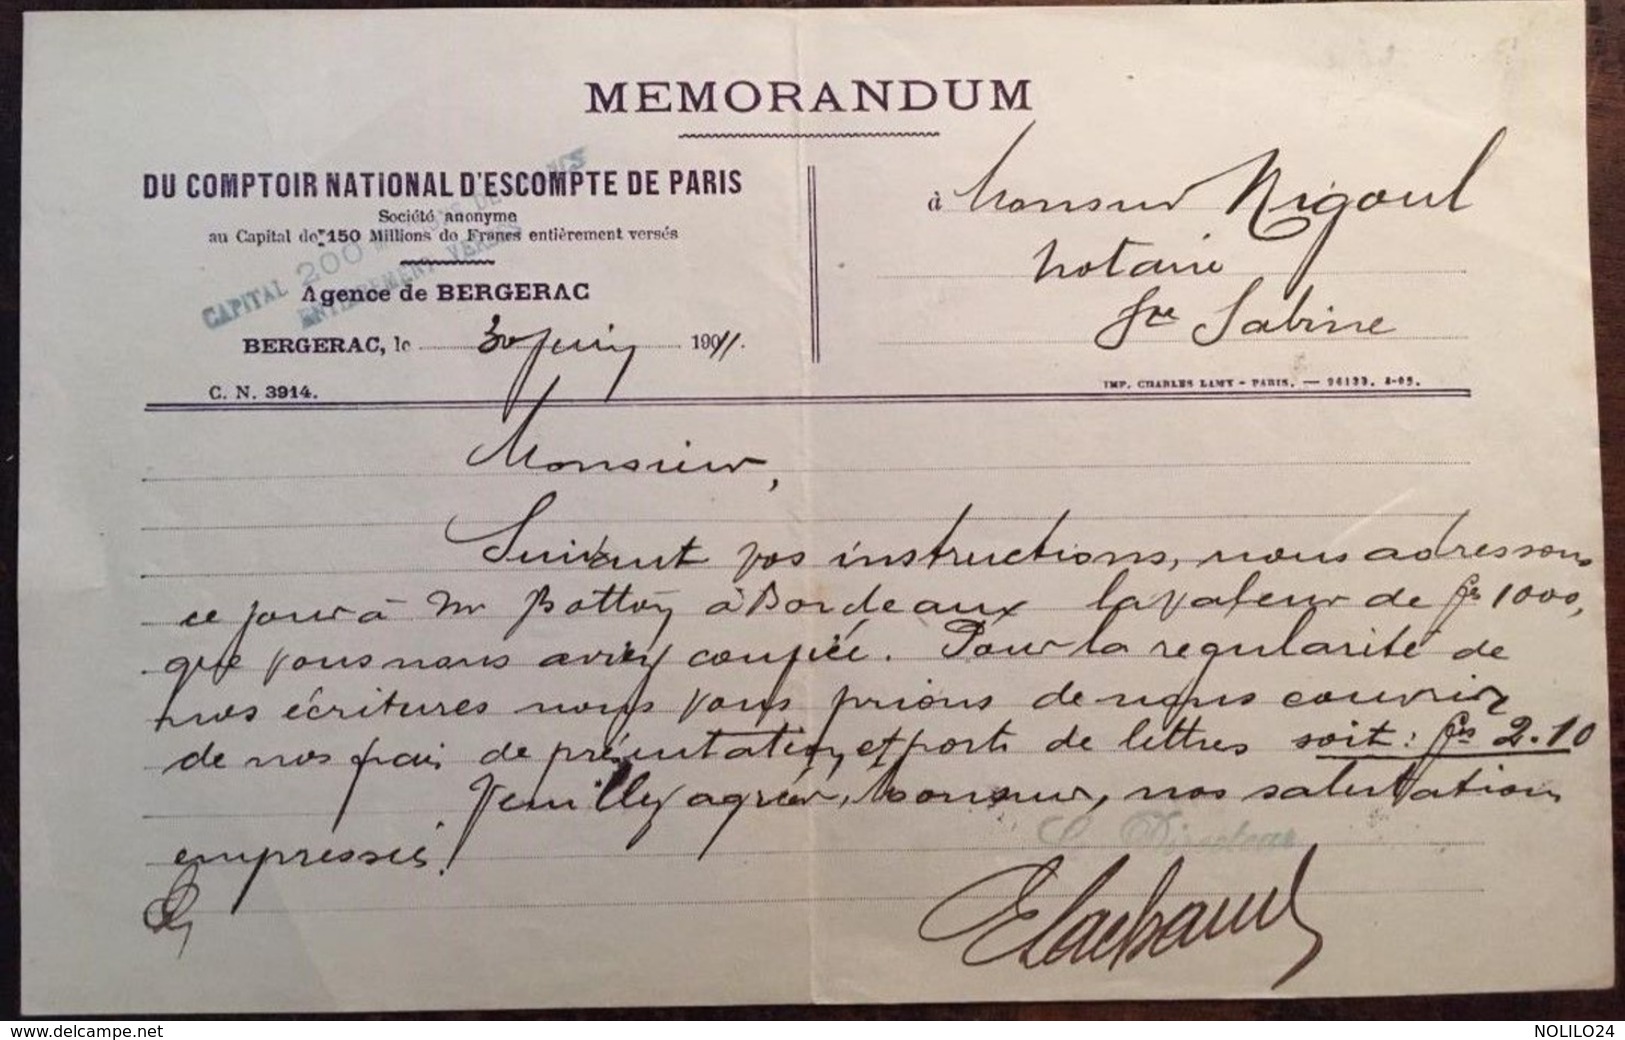 MEMORANDUM
DU COMPTOIR NATIONAL D'ESCOMPTE DE PARIS
Société anonyme
au Capital de 150 Millions de Francs entièrement versés
CAPITAL 200 MILLIONS DE FRANCS
ENTIEREMENT VERSÉS
Agence de BERGERAC
BERGERAC, le 30 Juin 1911.
C. N. 3914.
à Monsieur Rigoul
notaire
Ste Sabine
IMP. CHARLES LAMY - PARIS. — 96133. 8-09.
Monsieur,
Suivant vos instructions, nous adressons
ce jour à Mr à Bordeaux la valeur de frs 1000,
que vous nous aviez coupée. Pour la regularité de
nos écritures nous vous prions de nous couvrir
de nos frais de présentation et ports de lettres soit : frs 2.10
Veuillez agréer, Monsieur, nos salutations
empressées.
Le Directeur
www.delcampe.net
NOLILO24